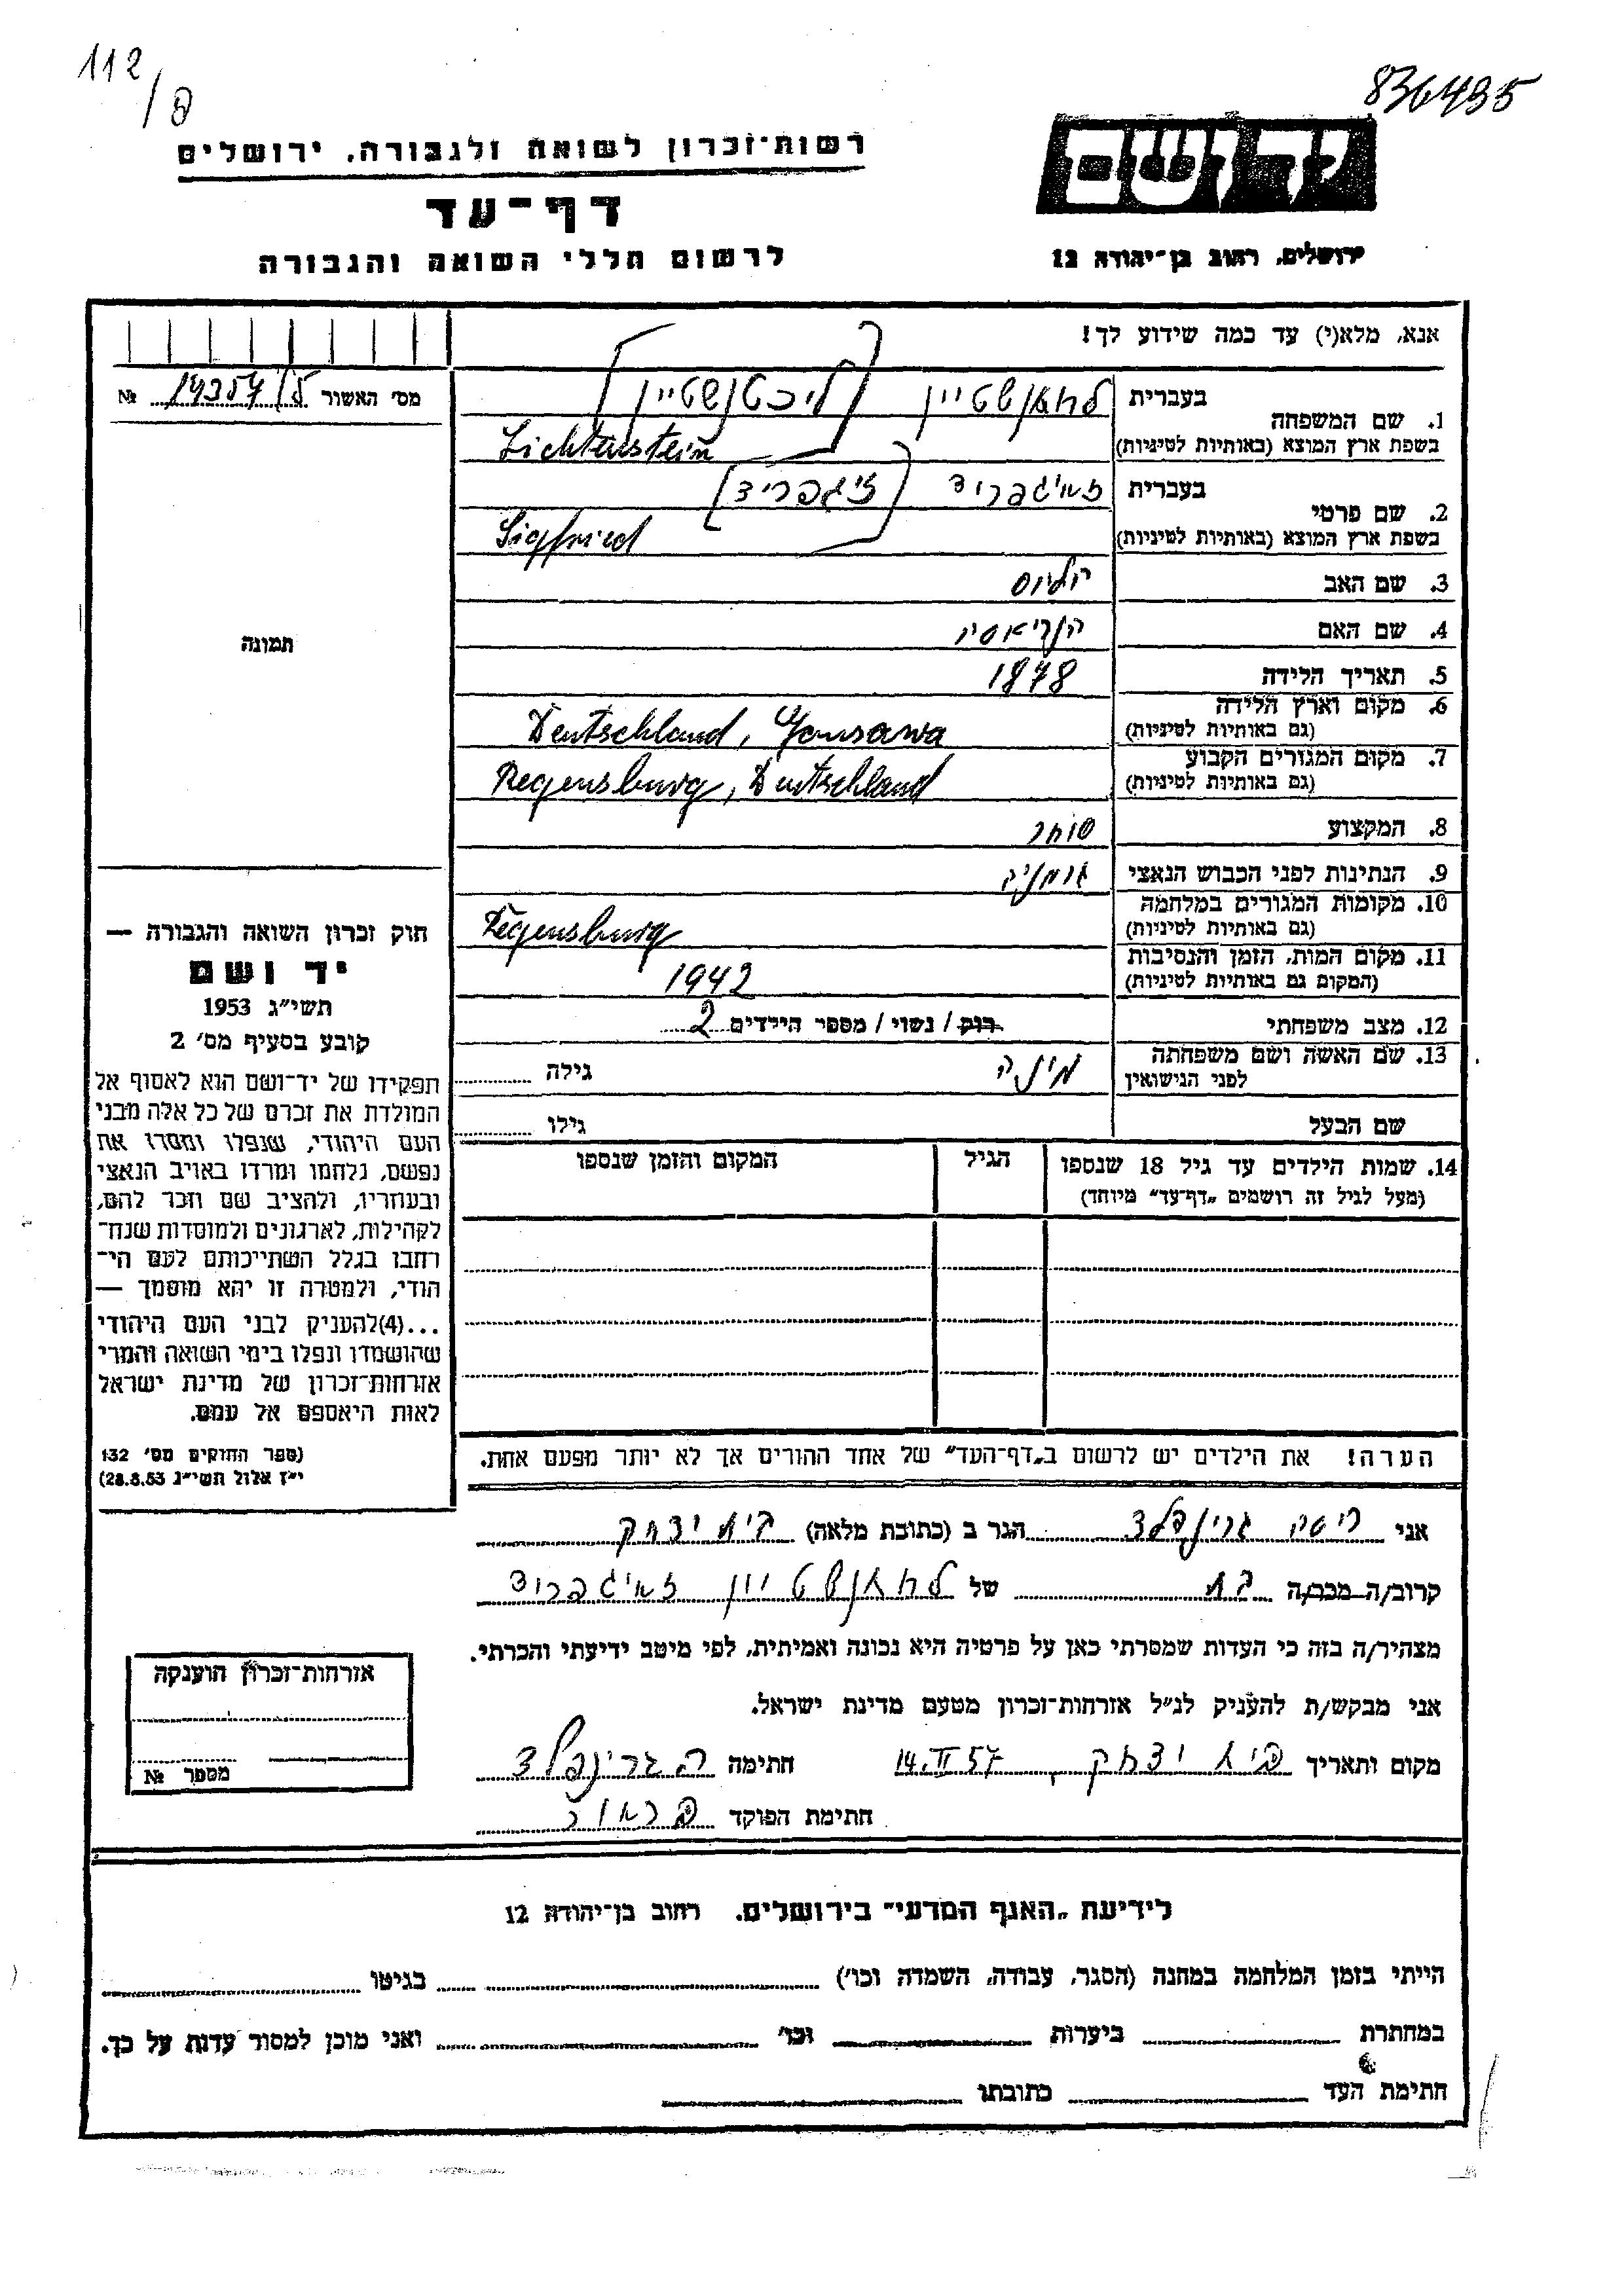 112
/פ
836495
רשות־זכרון לשואה ולגבורה, ירושלים
דף־עד
לרשום חללי השואה והגבורה
יד ושם
ירושלים, רחוב בן־יהודה 12
אנא, מלא(י) עד כמה שידוע לך!
מס׳ האשור № 19357/ל
1. שם המשפחה
בעברית לחטנשטיין [ליכטנשטיין]
בשפת ארץ המוצא (באותיות לטיניות) Lichtenstein
2. שם פרטי
בעברית זאיגפריד [זיגפריד]
בשפת ארץ המוצא (באותיות לטיניות) Sigfried
3. שם האב יוליוס
4. שם האם הנריאטה
5. תאריך הלידה 1878
6. מקום וארץ הלידה (גם באותיות לטיניות) Deutschland, Gonsawa
7. מקום המגורים הקבוע (גם באותיות לטיניות) Regensburg, Deutschland
8. המקצוע סוחר
9. הנתינות לפני הכבוש הנאצי גרמניה
10. מקומות המגורים במלחמה (גם באותיות לטיניות) Regensburg
11. מקום המות, הזמן והנסיבות (המקום גם באותיות לטיניות) 1942
12. מצב משפחתי רוק / נשוי / מספר הילדים 2
13. שם האשה ושם משפחתה לפני הנישואין מינה גילה
שם הבעל גילו
14. שמות הילדים עד גיל 18 שנספו
(מעל לגיל זה רושמים „דף־עד” מיוחד)
הגיל
המקום והזמן שנספו
תמונה
חוק זכרון השואה והגבורה —
יד ושם
תשי״ג 1953
קובע בסעיף מס׳ 2
תפקידו של יד־ושם הוא לאסוף אל
המולדת את זכרם של כל אלה מבני
העם היהודי, שנפלו ומסרו את
נפשם, נלחמו ומרדו באויב הנאצי
ובעוזריו, ולהציב שם וזכר להם,
לקהילות, לארגונים ולמוסדות שנח־
רבו בגלל השתייכותם לעם הי־
הודי, ולמטרה זו יהא מוסמך —
...(4)להעניק לבני העם היהודי
שהושמדו ונפלו בימי השואה והמרי
אזרחות־זכרון של מדינת ישראל
לאות היאספם אל עמם.
(ספר החוקים מס׳ 132
י״ז אלול תשי״ג 28.8.53)
הערה! את הילדים יש לרשום ב„דף־העד” של אחד ההורים אך לא יותר מפעם אחת.
אני ריטה גרינפלד הגר ב (כתובת מלאה) בית יצחק
קרוב/ה מכר/ה בת של לחטנשטיין זאיגפריד
מצהיר/ה בזה כי העדות שמסרתי כאן על פרטיה היא נכונה ואמיתית, לפי מיטב ידיעתי והכרתי.
אני מבקש/ת להעניק לנ״ל אזרחות־זכרון מטעם מדינת ישראל.
מקום ותאריך בית יצחק, 14.II 57 חתימה ר. גרינפלד
חתימת הפוקד
אזרחות־זכרון הוענקה
מספר №
לידיעת „האגף המדעי” בירושלים, רחוב בן־יהודה 12
הייתי בזמן המלחמה במחנה (הסגר, עבודה, השמדה וכו׳) בגיטו
במחתרת ביערות וכו׳ ואני מוכן למסור עדות על כך.
חתימת העד כתובתו